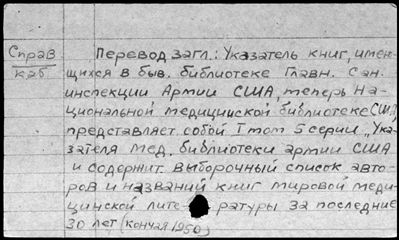 Справ Перевод загл.: Указатель книг, имею-
каб щихся в быв. библиотеке Главн. Сан.
инспекции Армии США, теперь На-
циональной медицинской библиотеке США,
представляет собой I том 5 серии "Ука-
зателя мед. библиотеки армии США
и содержит выборочный список авто-
ров и названий книг мировой меди-
цинской лите ратуры за последние
30 лет (кончая 1950)